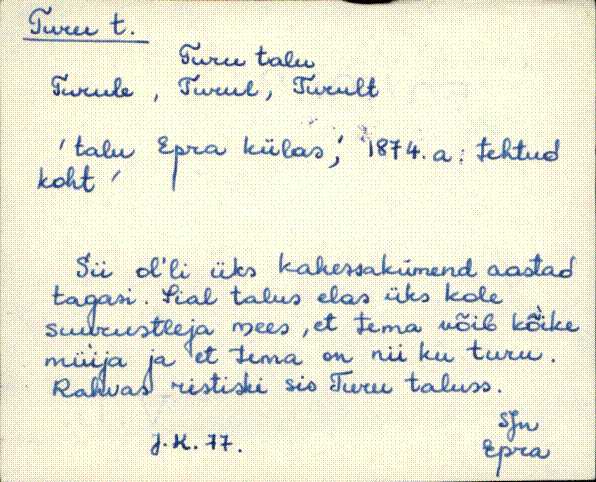 Turu t.
Turu talu
Turule, Turul, Turult
'talu Epra külas', 1874.a. tehtud
koht'
Sii ol'li üks kahessakümend aastad
tagasi. Sial talus elas üks kole
suurustleja mees, et tema võib kõ̀ike
müija ja et tema on nii ku turu.
Rahvas ristiski sis Turu taluss.
J.K. 77.
SJn
Epra